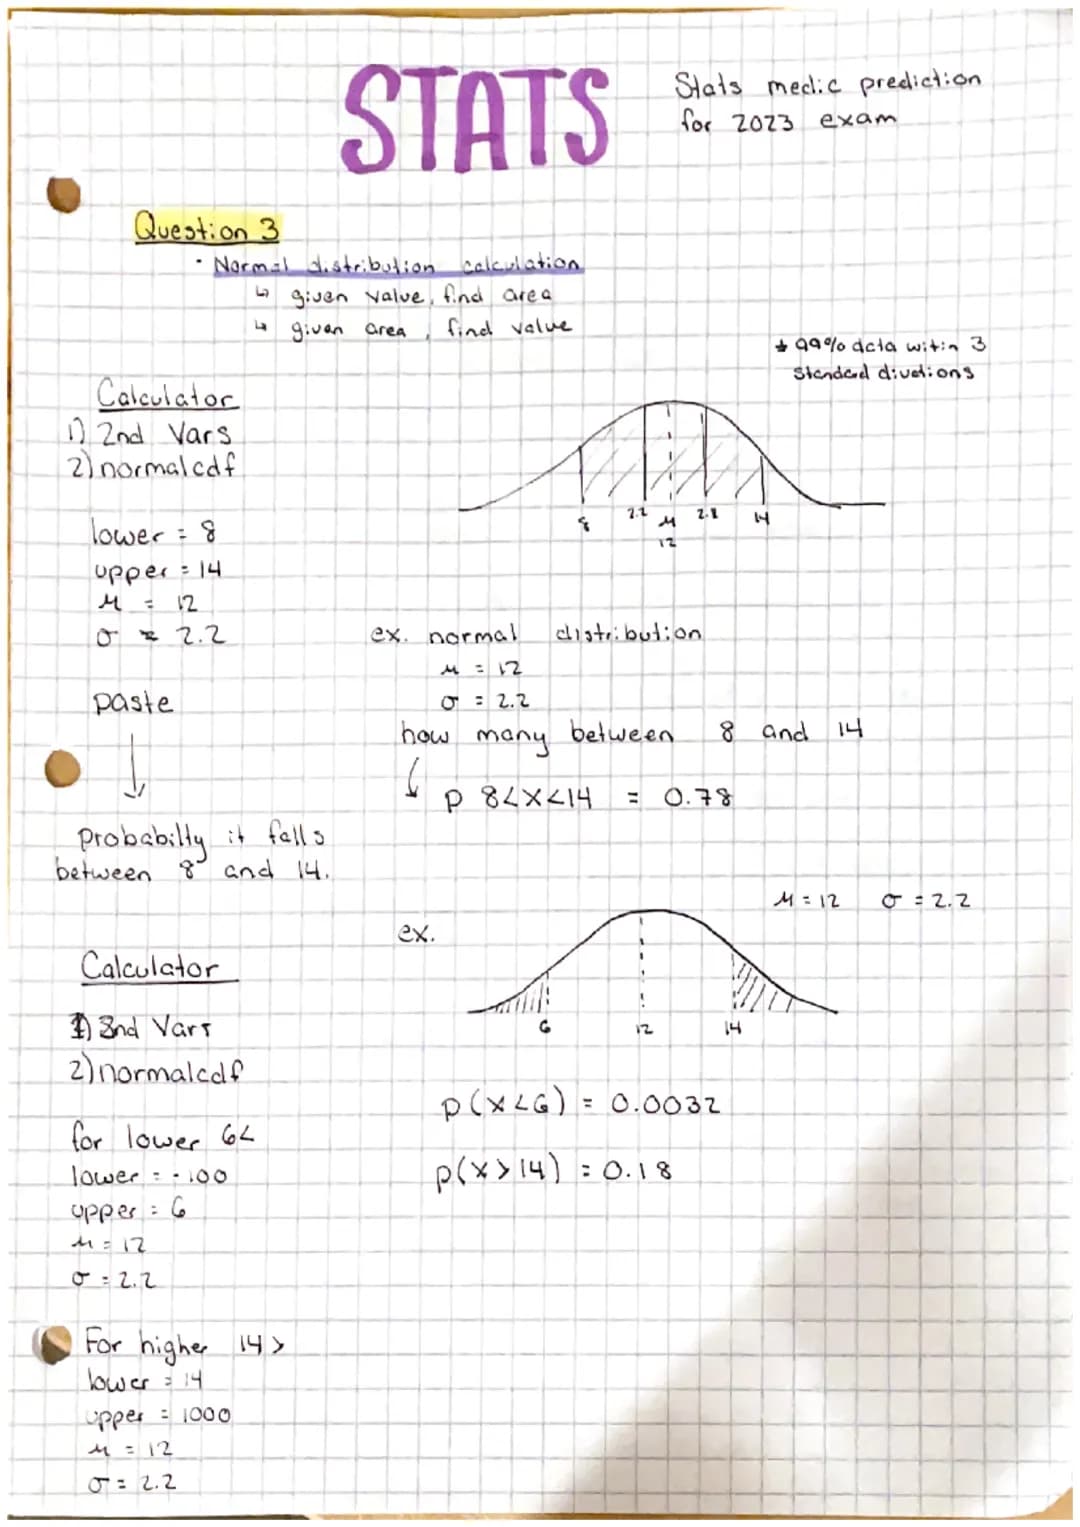 STATS
Stats medic prediction
for 2023 exam
Question 3
• Normal distribution calculation
↳ given value, find area
↳ given area, find value
* 99% data witin 3
standard divations
Calculator
1) 2nd Vars
2) normalcdf
lower = 8
upper = 14
μ = 12
σ = 2.2
paste
↓
probabilty it falls
between 8 and 14.
8 2.2 μ 2.2 14
12
ex. normal distribution
μ = 12
σ = 2.2
how many between 8 and 14
↓ p 8<X<14 = 0.78
Calculator
1) 2nd Vars
2) normalcdf
for lower 6<
lower = -100
upper = 6
μ = 12
σ = 2.2
For higher 14>
lower = 14
upper = 1000
μ = 12
σ = 2.2
ex.
μ = 12 σ = 2.2
6 12 14
p(X<6) = 0.0032
p(X>14) = 0.18